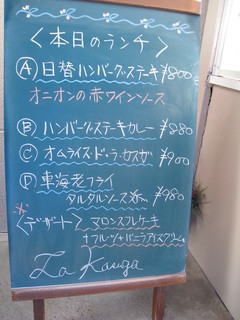 〈本日のランチ〉
Ⓐ日替ハンバーグ・ステーキ ¥800
オニオンの赤ワインソース
Ⓑハンバーグ・ステーキカレー ¥880
Ⓒオムライス・ド・ラ・カスガ ¥900
Ⓓ車海老フライ
タルタルソース添え ¥980
〈デザート〉マロンスフレケーキ
+フルーツ+バニラアイスクリーム
La Kasuga